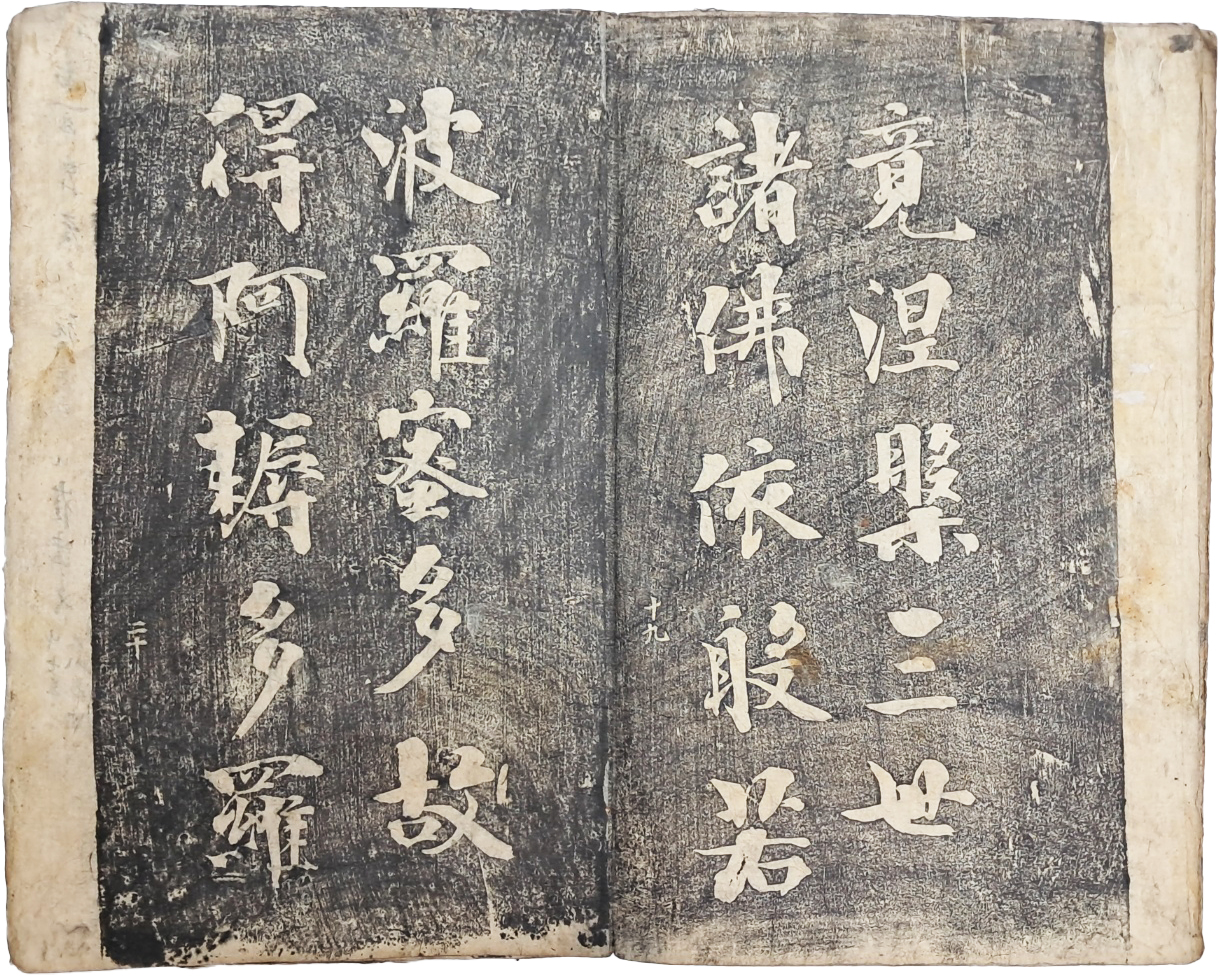 竟涅槃三世
諸佛依般若
十九
波羅蜜多故
得阿耨多羅
二十